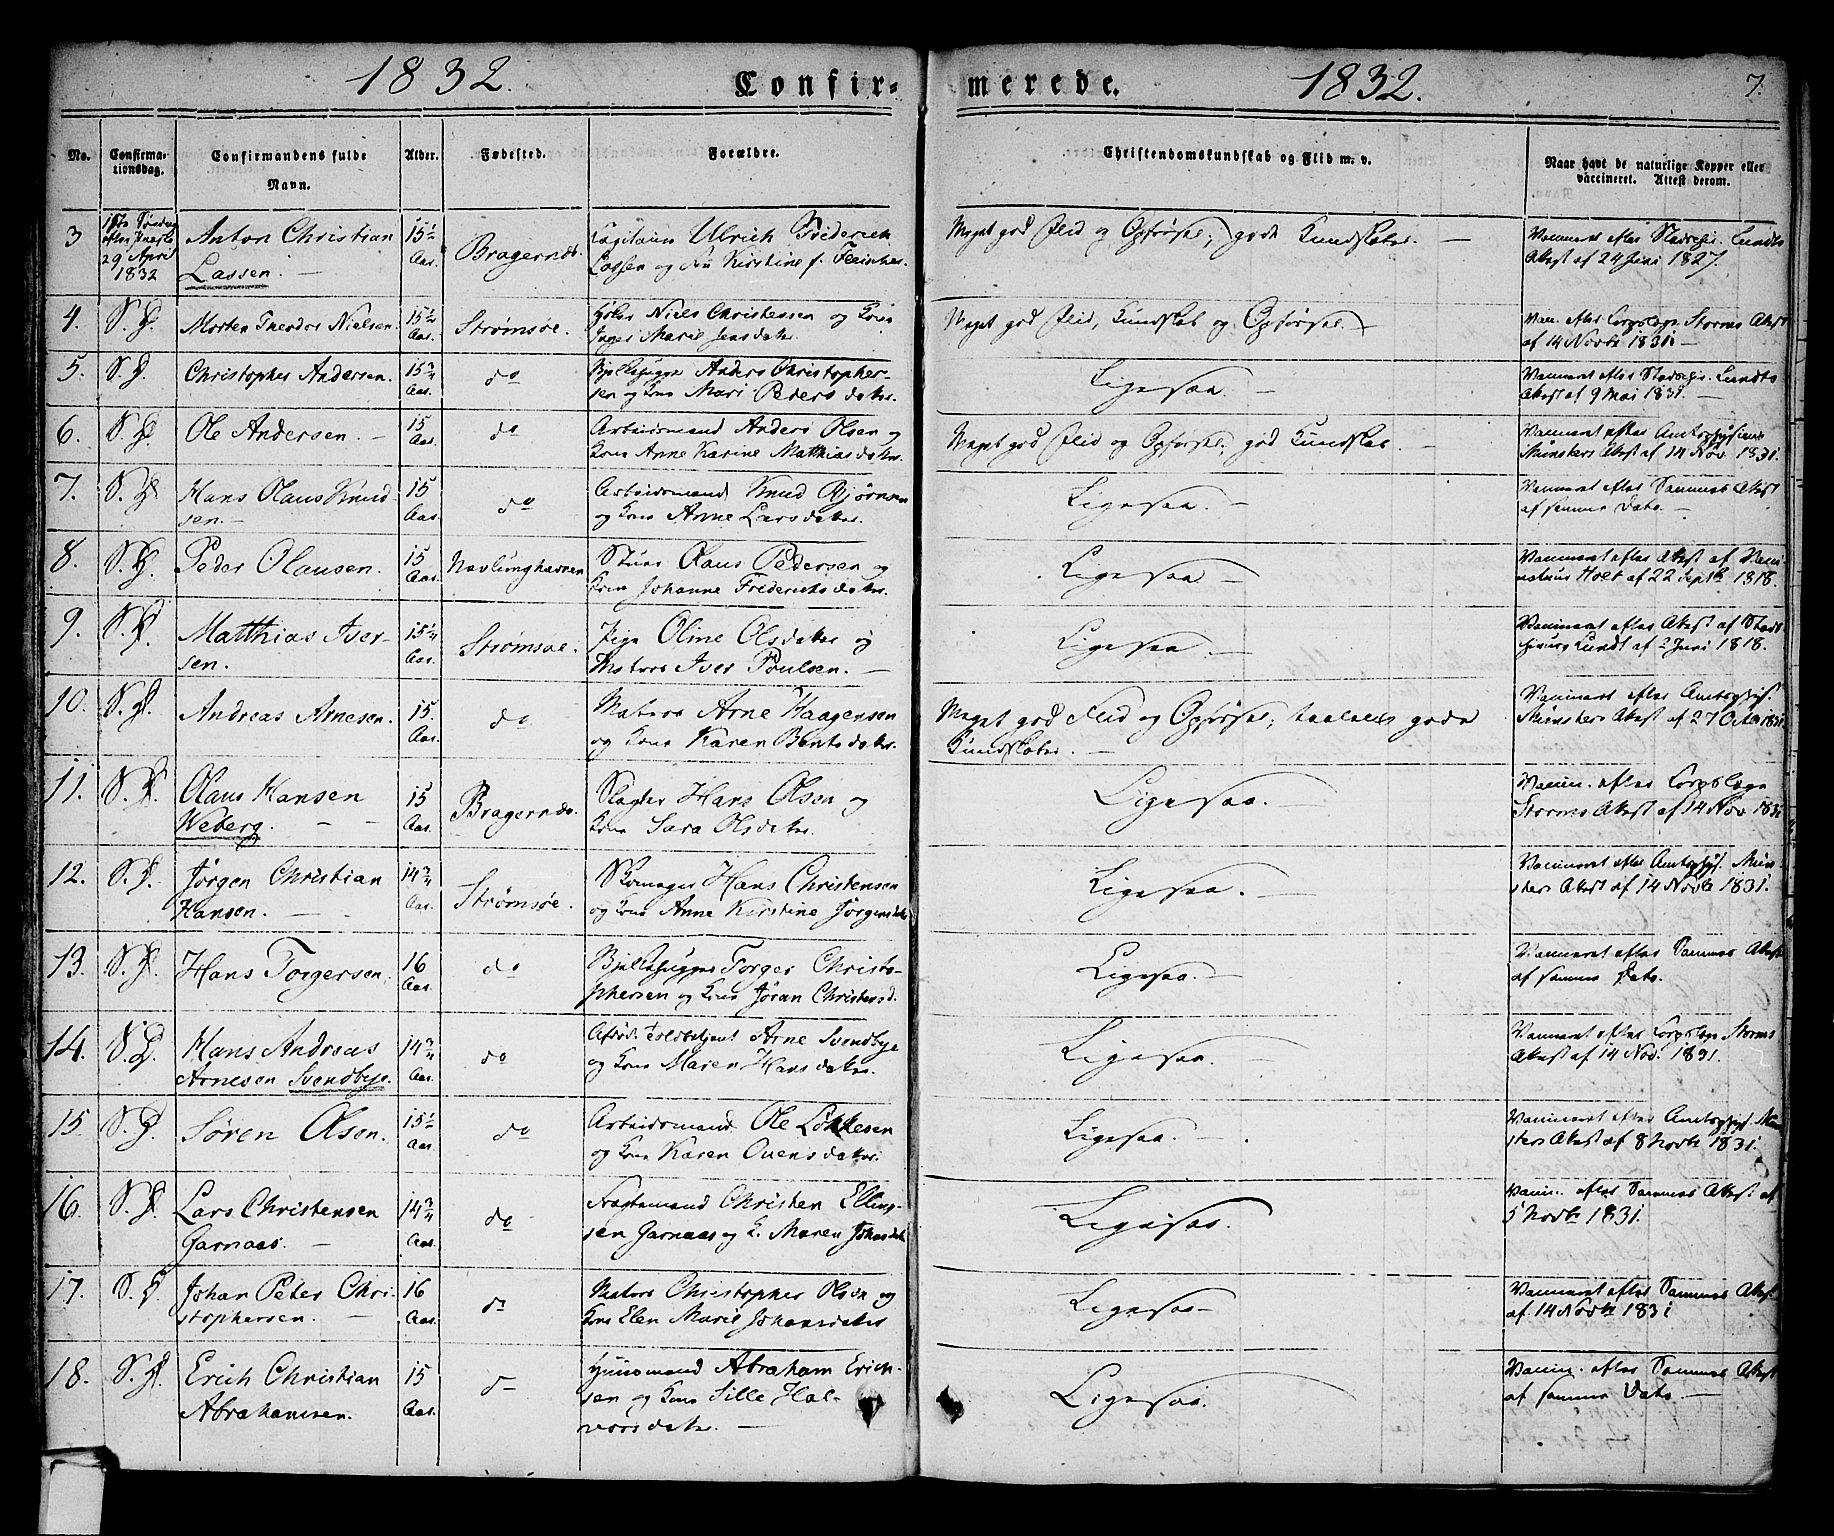 1832. Confir-
merede. 1832. 7.
No. Confirma-
tionsdag. Confirmandens fulde
Navn. Alder. Fødested. Forældre.
Christendomskundskab og Flid m. v. Naar havt de naturlige Kopper eller
vaccineret. Attest derom.
3 Søndag
efter Paaske
29 April
1832
Anton Christian
Lassen. —
15½
Aar.
Bragernæs.
Capitain Ulrich Frederich
Lassen og Kirstine f.
Meget god Flid og Opførsel; gode Kundskaber. —
Vaccineret efter Stadschir. Lundts
Attest af 24 Juni 1827.
4. S. D. Morten Theodor Nielsen.
15½
Aar.
Strømsøe.
Niels Christensen og Kone
Inger Marie Jensdatter.
Meget god Flid, Kundskab og Opførsel. —
Vacc. efter Corpslæge Storms Attest
af 14 Novbr 1831. —
5. S. D. Christopher Andersen.
15¾
Aar.
do
Anders Christopher-
sen og Kone Mari Pedersdatter.
Ligesaa. —
Vaccineret efter Stadschir. Lundts
Attest af 9 Mai 1831. —
6. S. D. Ole Andersen. —
15
Aar.
do
Arbeidsmand Anders Olsen og
Kone Anne Karine Matthiasdatter.
Meget god Flid og Opførsel; god Kundskab. —
Vaccineret efter Amtsphysicus
Münsters Attest af 14 Nov. 1831.
7. S. D. Hans Olaus Knud-
sen. —
15
Aar.
do
Arbeidsmand Knud Bjørnsen
og Kone Anne Larsdatter.
Ligesaa. —
Vaccineret efter Sammes Attest
af samme Dato. —
8. S. D. Peder Olausen.
15
Aar.
Nevlunghavnen
Olaus Pedersen og
Kone Johanne Frederiksdatter.
Ligesaa —
Vaccineret efter Attest af
Holt af 22 Septbr 1818.
9. S. D. Matthias Iver-
sen.
15¼
Aar.
Strømsøe.
Pige Oline Olsdatter og
Matros Iver Poulsen. —
Ligesaa. —
Vaccineret efter Attest af Stads-
chirurg Lundt af 2 Juni 1818.
10. S. D. Andreas Arnesen.
15.
Aar.
do
Matros Arne Haagensen
og Kone Karen Bentsdatter.
Meget god Flid og Opførsel; gode
Kundskaber. —
Vaccineret efter Amtsphys.
Münsters Attest af 27 Octbr 1831
11. S. D. Olaus Hansen
Weberg. —
15
Aar.
Bragernæs.
Slagter Hans Olsen og
Kone Sara Olsdatter.
Ligesaa. —
Vaccin. efter Corpslæge
Storms Attest af 14 Nov 1831
12. S. D. Jørgen Christian
Hansen. —
14¾
Aar.
Strømsøe.
Skomager Hans Christensen
og Kone Anne Kirstine Jørgensdatter
Ligesaa. —
Vaccineret efter Amtsphys. Mün-
sters Attest af 14 Novbr 1831.
13. S. D. Hans Torgersen.
16
Aar.
do
Torger Christo-
phersen og Kone Jøran Christensd.
Ligesaa. —
Vaccineret efter Sammes Attest
af samme Dato.
14. S. D. Hans Andreas
Arnesen Svendbye.
14¾
Aar.
do
Afdød Toldbetjent Arne Svendbye
og Kone Maren Hansdatter.
Ligesaa.
Vaccineret efter Corpslæge Storms
Attest af 14 Nov. 1831.
15. S. D. Søren Olsen.
15½
Aar
do
Arbeidsmand Ole Løkkesen
og Kone Karen Ouensdatter.
Ligesaa. —
Vaccineret efter Amtsphys. Mün-
sters Attest af 8 Novbr 1831.
16. S. D. Lars Christensen
Garnaas. —
14¾
Aar.
do
Christen Elling-
sen Garnaas og K. Maren Johansdatter
Ligesaa.
Vaccin. efter Sammes Attest af
5 Novbr 1831.
17. S. D. Johan Peter Chri-
stophersen. —
16
Aar.
do
Matros Christopher Olsen og
Kone Elen Marie Johansdatter
Ligesaa —
Vaccineret efter Sammes Attest
af 14 Novbr 1831
18. S. D. Erich Christian
Abrahamsen.
15
Aar.
do
Huusmand Abraham Erich-
sen og Kone Sille Hal-
vorsdatter.
Ligesaa.
Vaccin. efter Sammes Attest
af samme Dato. —